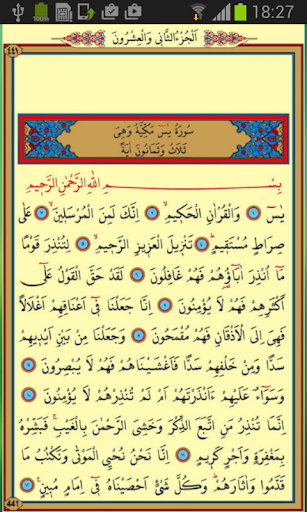 100% 18:27
٤٤١ اَلْجُزْءُ الثَّانِى وَالْعِشْرُونَ
سُورَةُ يٰسٓ مَكِّيَّةٌ وَهِىَ
ثَلَاثٌ وَثَمَانُونَ اٰيَةً
بِسْــــمِ اللّٰهِ الرَّحْمٰنِ الرَّحٖيمِ
يٰسٓ ١ وَالْقُرْاٰنِ الْحَكٖيمِ ٢ اِنَّكَ لَمِنَ الْمُرْسَلٖينَ ٣ عَلٰى
صِرَاطٍ مُسْتَقٖيمٍ ٤ تَنْزٖيلَ الْعَزٖيزِ الرَّحٖيمِ ٥ لِتُنْذِرَ قَوْمًا
مَٓا اُنْذِرَ اٰبَٓاؤُ۬هُمْ فَهُمْ غَافِلُونَ ٦ لَقَدْ حَقَّ الْقَوْلُ عَلٰٓى
اَكْثَرِهِمْ فَهُمْ لَا يُؤْمِنُونَ ٧ اِنَّا جَعَلْنَا فٖٓى اَعْنَاقِهِمْ اَغْلَالًا
فَهِىَ اِلَى الْاَذْقَانِ فَهُمْ مُقْمَحُونَ ٨ وَجَعَلْنَا مِنْ بَيْنِ اَيْدٖيهِمْ
سَدًّا وَمِنْ خَلْفِهِمْ سَدًّا فَاَغْشَيْنَاهُمْ فَهُمْ لَا يُبْصِرُونَ ٩
وَسَوَٓاءٌ عَلَيْهِمْ ءَاَنْذَرْتَهُمْ اَمْ لَمْ تُنْذِرْهُمْ لَا يُؤْمِنُونَ ١٠
اِنَّمَا تُنْذِرُ مَنِ اتَّبَعَ الذِّكْرَ وَخَشِىَ الرَّحْمٰنَ بِالْغَيْبِ فَبَشِّرْهُ
بِمَغْفِرَةٍ وَاَجْرٍ كَرٖيمٍ ١١ اِنَّا نَحْنُ نُحْيِى الْمَوْتٰى وَنَكْتُبُ مَا
قَدَّمُوا وَاٰثَارَهُمْ وَكُلَّ شَىْءٍ اَحْصَيْنَاهُ فٖٓى اِمَامٍ مُبٖينٍ ١٢
441